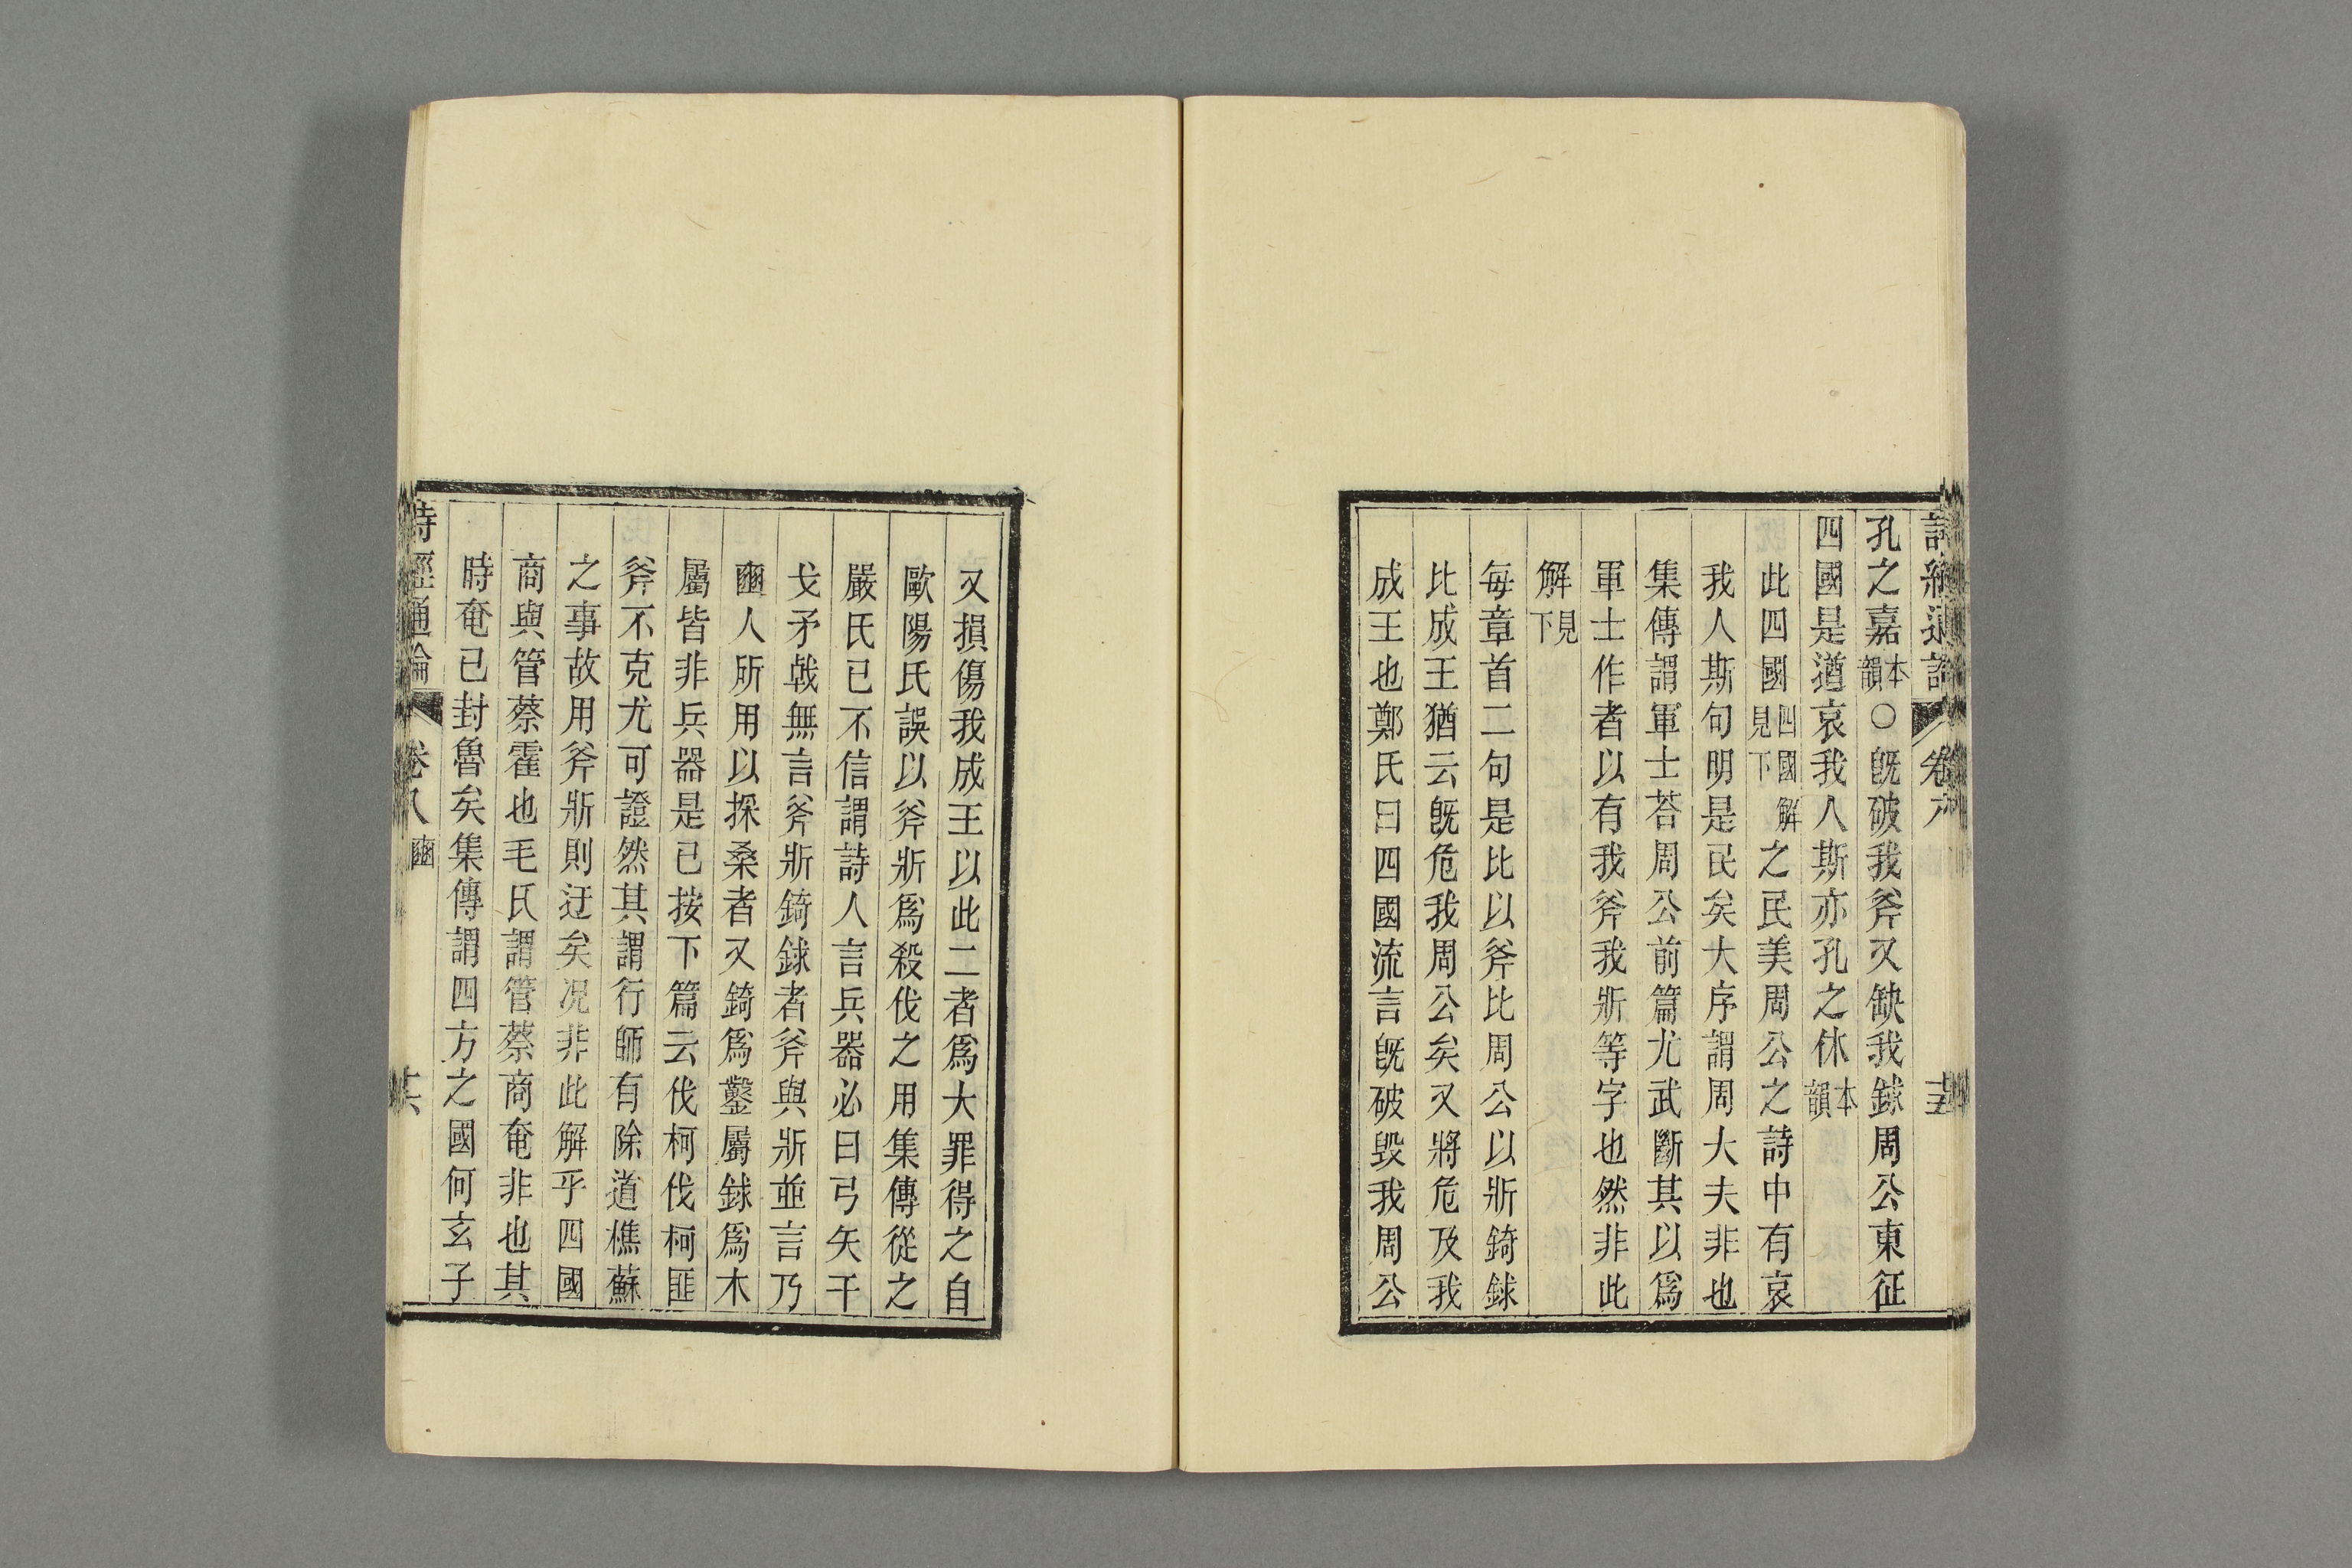 詩經通論 卷八 十五
孔之嘉本韻○旣破我斧又缺我銶周公東征
四國是遒哀我人斯亦孔之休本韻
此四國四國解見下之民美周公之詩中有哀
我人斯句明是民矣大序謂周大夫非也
集傳謂軍士荅周公前篇尤武斷其以爲
軍士作者以有我斧我斨等字也然非此
解見下
每章首二句是比以斧比周公以斨錡銶
比成王猶云旣危我周公矣又將危及我
成王也鄭氏曰四國流言旣破毀我周公
又損傷我成王以此二者爲大罪得之自
歐陽氏誤以斧斨爲殺伐之用集傳從之
嚴氏已不信謂詩人言兵器必曰弓矢干
戈矛戟無言斧斨錡銶者斧與斨並言乃
豳人所用以採桑者又錡爲鑿屬銶爲木
屬皆非兵器是已按下篇云伐柯伐柯匪
斧不克尤可證然其謂行師有除道樵蘇
之事故用斧斨則迂矣况非此解乎四國
商與管蔡霍也毛氏謂管蔡商奄非也其
時奄已封魯矣集傳謂四方之國何玄子
詩經通論 卷八 豳 其